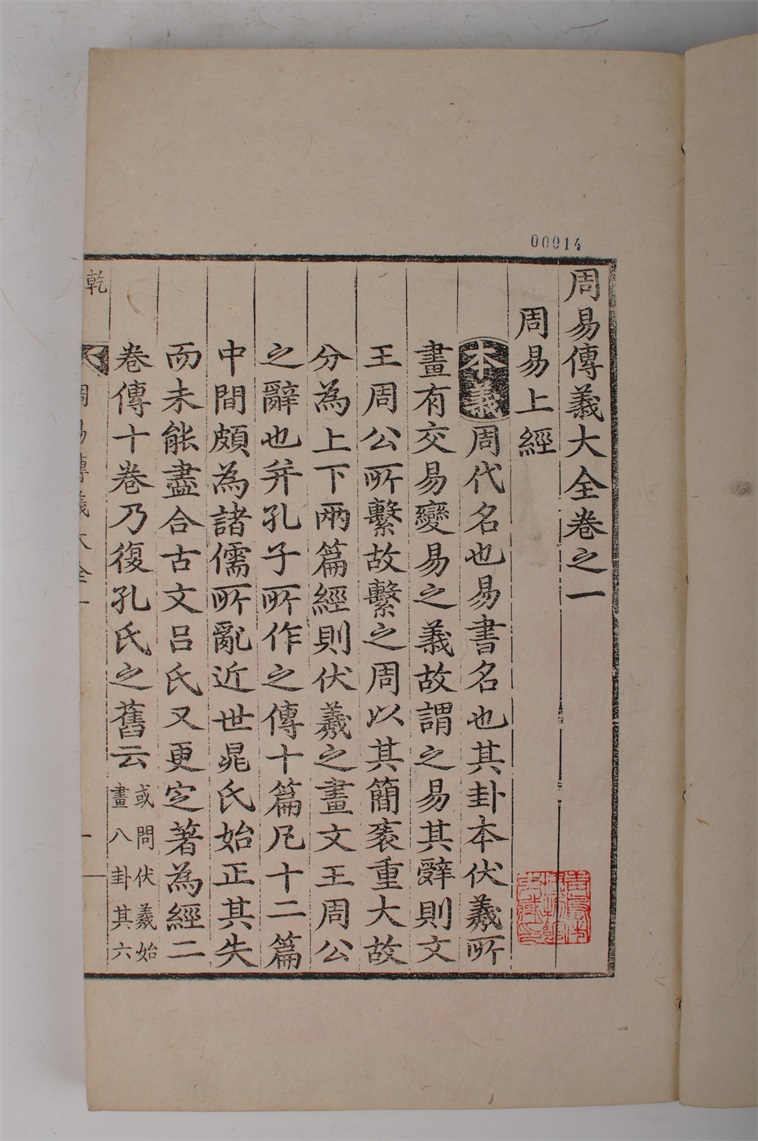 00014
周易傳義大全卷之一
周易上經
本義周代名也易書名也其卦本伏羲所
畫有交易變易之義故謂之易其辭則文
王周公所繫故繫之周以其簡袠重大故
分為上下兩篇經則伏羲之畫文王周公
之辭也并孔子所作之傳十篇凡十二篇
中間頗為諸儒所亂近世晁氏始正其失
而未能盡合古文呂氏又更定著為經二
卷傳十卷乃復孔氏之舊云
或問伏羲始
畫八卦其六
乾
周易傳義大全一
一